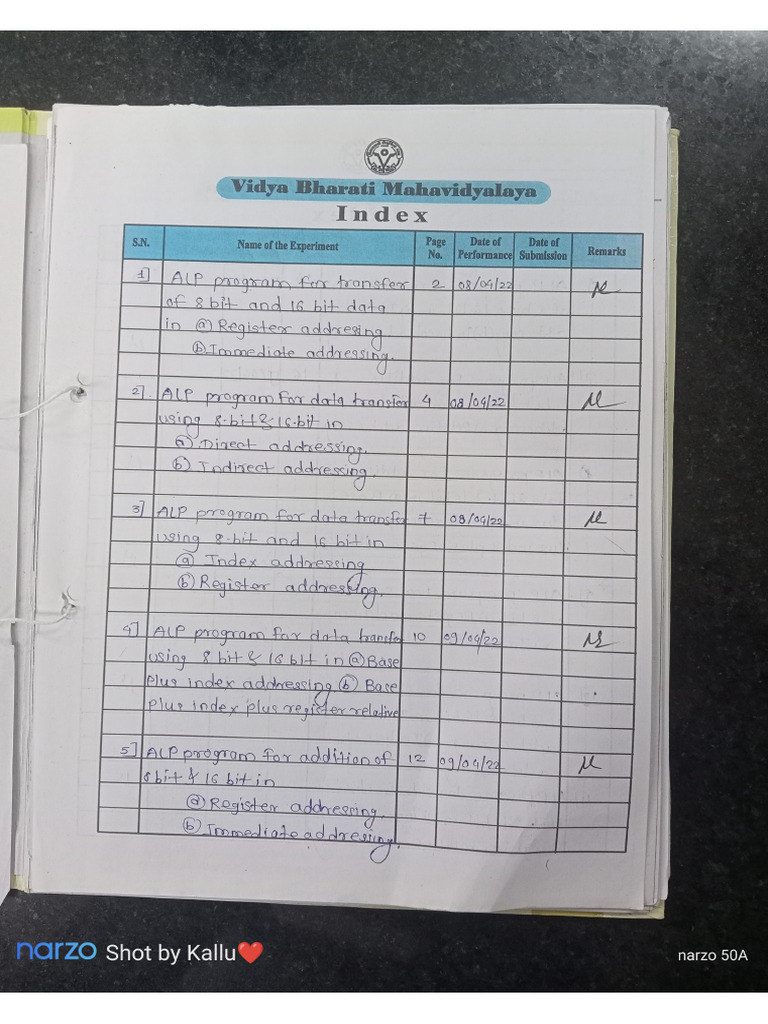 Vidya Bharati Mahavidyalaya
Index
S.N. Name of the Experiment Page No. Date of Performance Date of Submission Remarks
1] ALP program for transfer 2 08/04/22
of 8 bit and 16 bit data
in ⓐ Register addresing
ⓑ Immediate addressing.
2] ALP program for data transfer 4 08/04/22
using 8-bit & 16-bit in
ⓐ Direct addressing.
ⓑ Indirect addressing.
3] ALP program for data transfer 7 08/04/22
using 8-bit and 16 bit in
ⓐ Index addressing
ⓑ Register addressing.
4] ALP program for data transfer 10 09/04/22
using 8 bit & 16 bit in ⓐ Base
plus index addressing ⓑ Base
plus index plus register relative
5] ALP program for addition of 12 09/04/22
8bit & 16 bit in
ⓐ Register addressing.
ⓑ Immediate addressing.
narzo Shot by Kallu❤️ narzo 50A